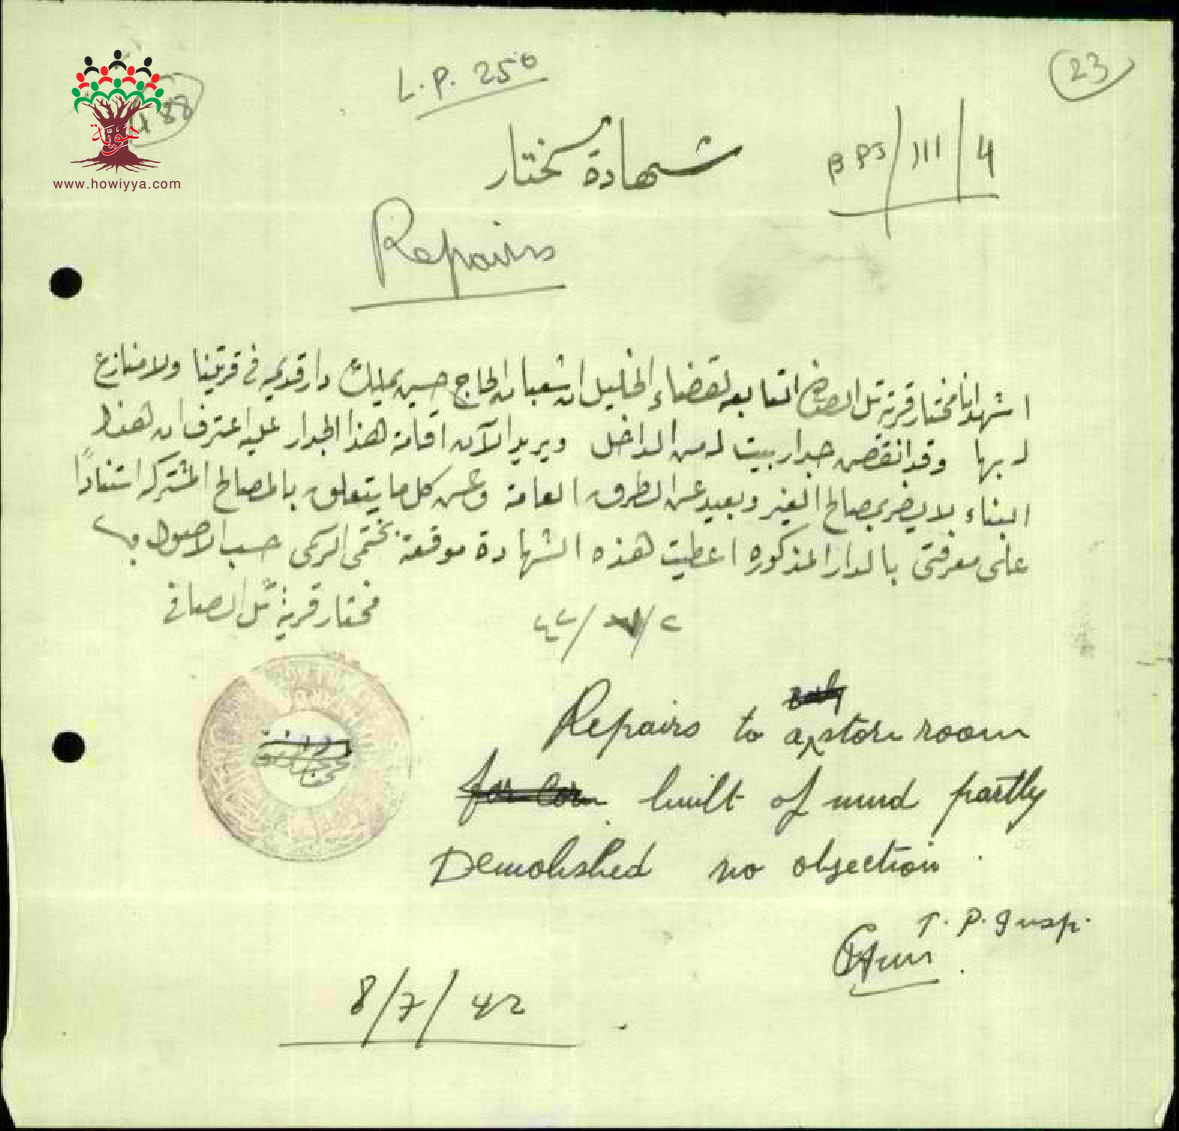 L.P. 250
23
488
هوية
www.howiyya.com
شهادة مختار
BPJ/111/4
Repairs
اشهد انا مختار قرية تل الصافي التابعه لقضاء الخليل ان شعبان الحاج حسين يملك دار قديمه في قريتنا ولا منازع
له بها وقد انقض جدار بيت له من الداخل ويريد الآن اقامة هذا الجدار عليه اعترف ان هذا
البناء لا يضر بمصالح الغير وبعيد عن الطرق العامة وعن كل ما يتعلق بالمصالح المشتركه استناداً
على معرفتي بالدار المذكوره اعطيت هذه الشهادة موقعة بختمي الرسمي حسب الاصول
مختار قرية تل الصافي
٢/٧/٤٢
Repairs to a store room
for corn built of mud partly
Demolished no objection
T. P. Insp.
8/7/42